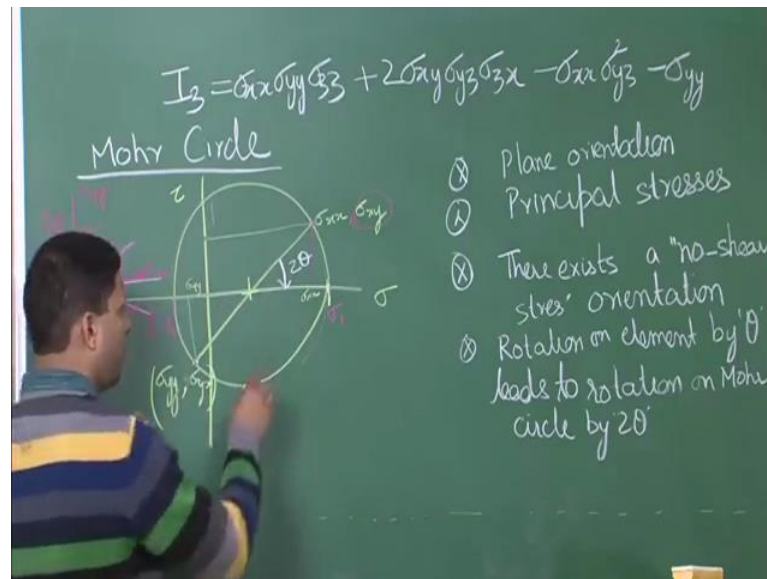 I₃ = σxx σyy σ33 + 2σxy σy3 σ3x − σxx σ²y3 − σyy
Mohr Circle
τ
σxx, σxy
2θ
σyy
σxx
σ
σ₁
(σyy, σyx)
Plane orientation
Principal stresses
There exists a "no-shear
stres' orientation
Rotation on element by 'θ'
leads to rotation on Mohr
circle by '2θ'